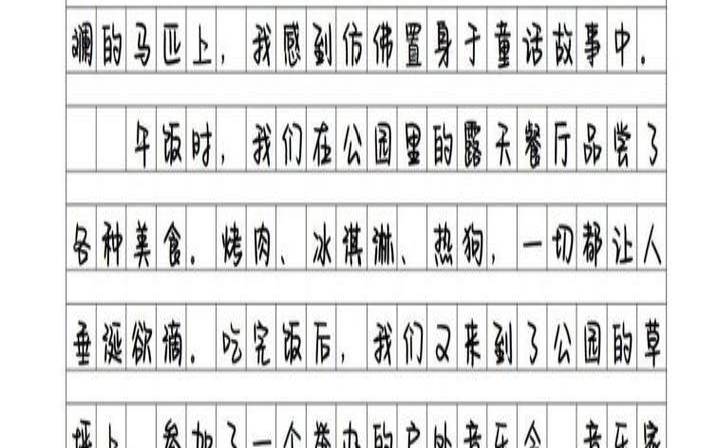 斓的马匹上，我感到仿佛置身于童话故事中.
午饭时，我们在公园里的露天餐厅品尝了
各种美食.烤肉、冰淇淋、热狗，一切都让人
垂涎欲滴.吃完饭后，我们又来到了公园的草
坪上，参加了一个举办的户外音乐会.音乐家